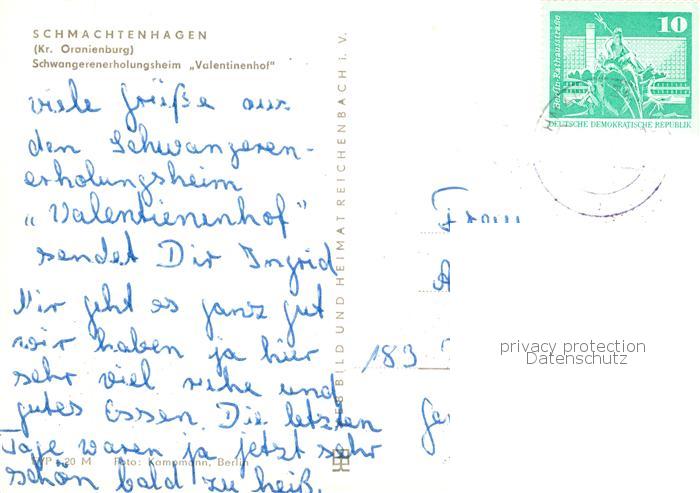 SCHMACHTENHAGEN
(Kr. Oranienburg)
Schwangerenerholungsheim „Valentinenhof"
viele Grüße aus
den Schwangeren-
erholungsheim
„Valentienenhof"
sendet Dir Ingrid
Mir geht es ganz gut
wir haben ja hier
sehr viel ruhe und
gutes Essen. Die letzten
Tage waren ja jetzt sehr
schön bald zu heiß.
20 M Foto: Kampmann, Berlin
BILD UND HEIMAT REICHENBACH i. V.
10
Berlin-Rathausstraße
DEUTSCHE DEMOKRATISCHE REPUBLIK
Frau
183
privacy protection
Datenschutz